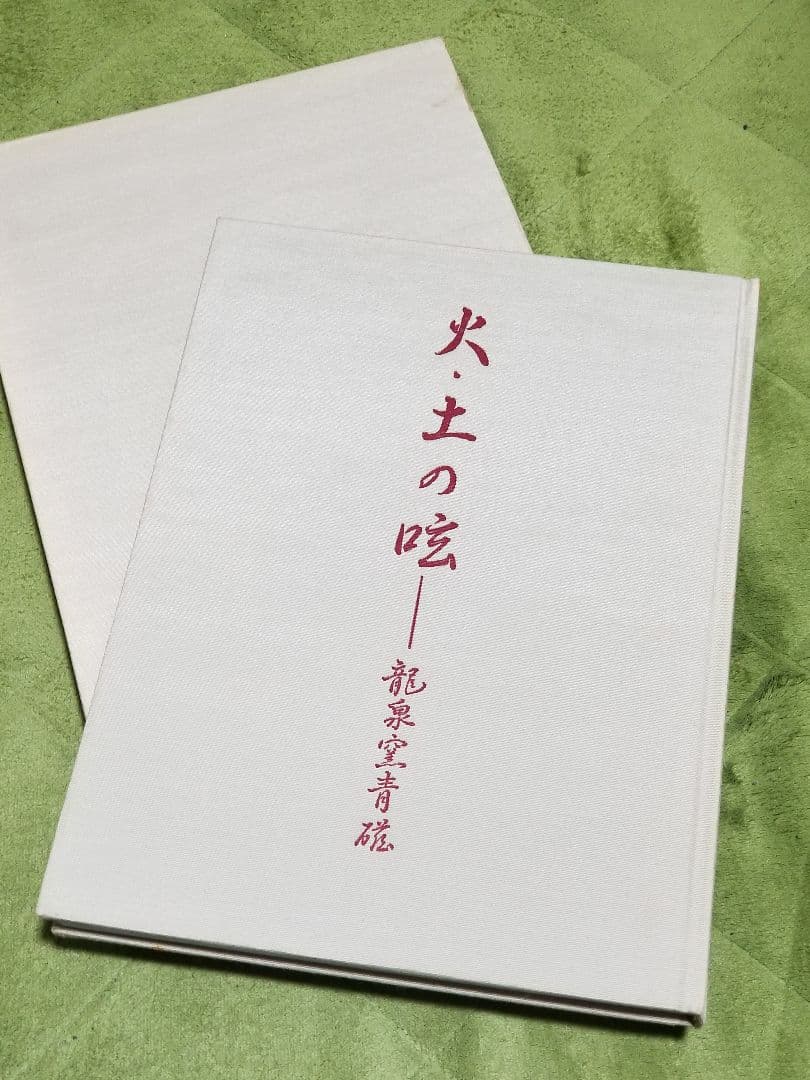 火・土の呟―龍泉窯青磁